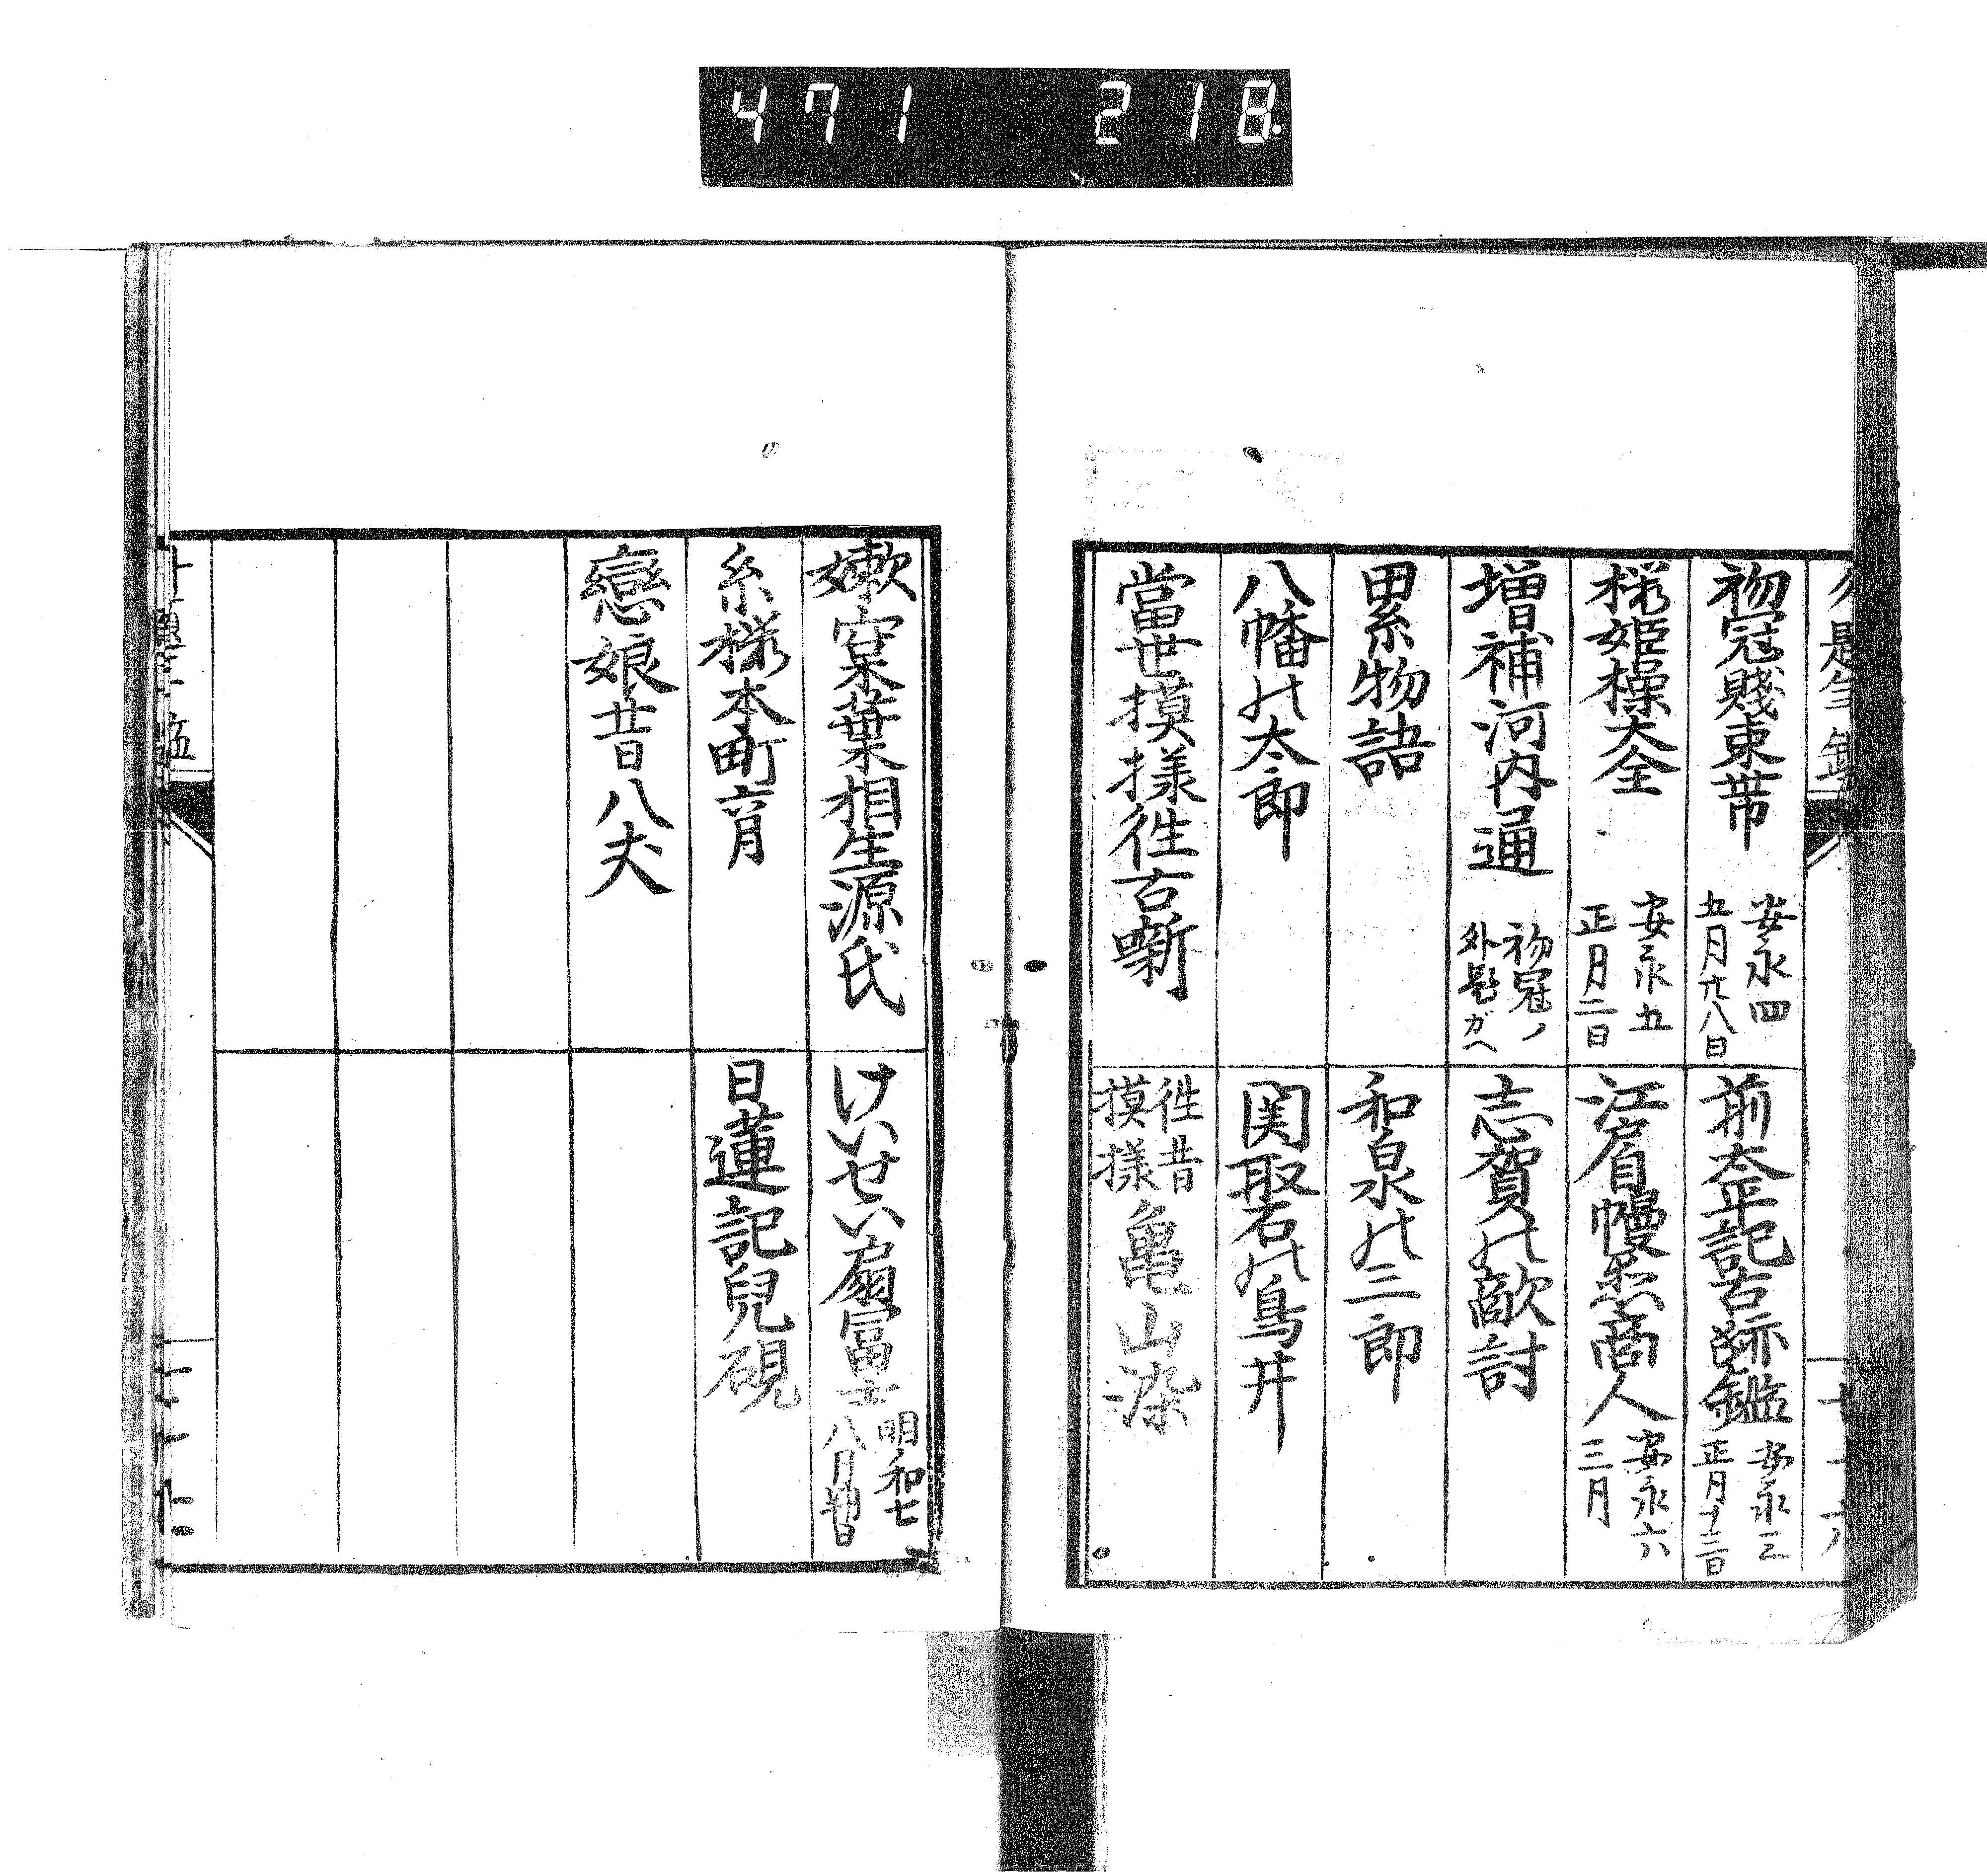 471 218
初冠賤束帯 安永四
五月廿八日
前太平記古跡鑑 安永三
正月十二日
桜姫操大全 安永五
正月二日
江眉幔愁商人 安永六
三月
増補河内通 初冠ノ
外題ガヘ
志賀の敵討
累物語
和泉の三郎
八幡の太郎
関取の鳥井
當世摸様往古噺
往昔
摸様 亀山染
嫩 葉相生源氏
けいせい扇冨士 明和七
八月
糸桜本町育
日蓮記児硯
戀娘昔八丈